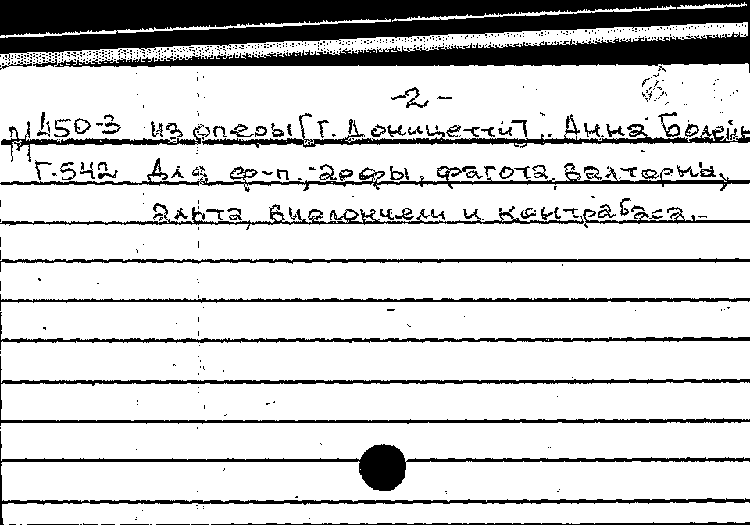 -2-
М 450-3 из оперы [Г. Доницетти] „Анна Болейн
Г-542 Для ф-п., арфы, фагота, валторны,
альта, виолончели и контрабаса.-